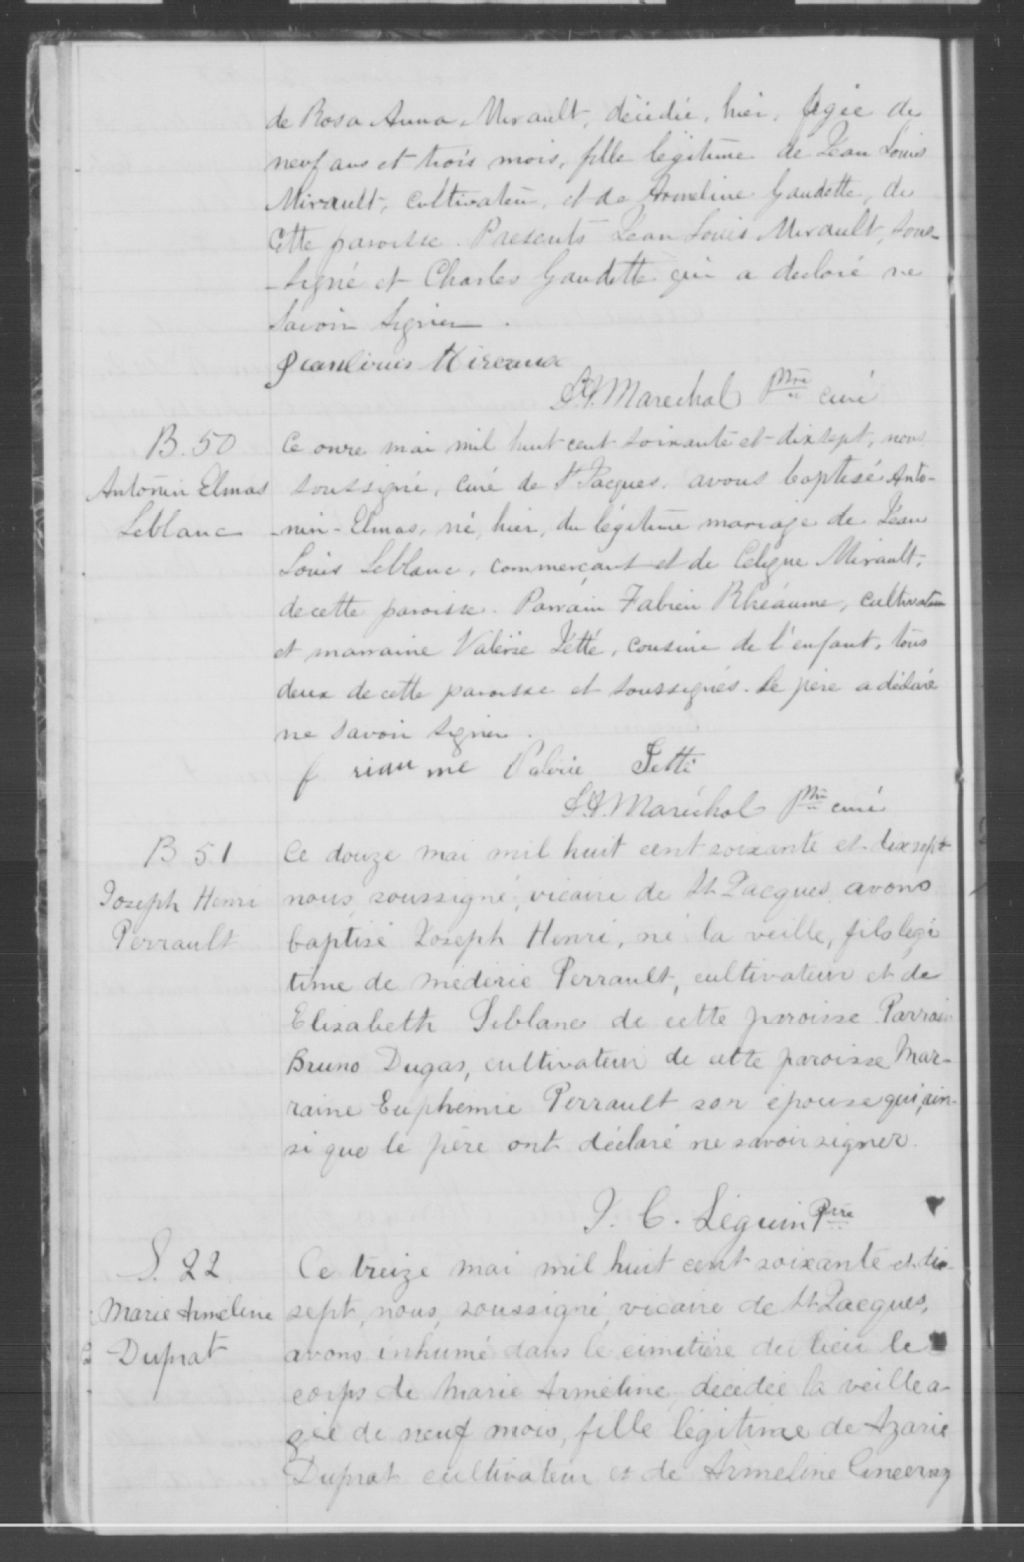 de Rosa Anna Mirault, décédée, hier, âgée de
neuf ans et trois mois, fille légitime de Jean Louis
Mirault, cultivateur, et de Armeline Gaudette, de
cette paroisse. Presents Jean Louis Mirault, sous-
-signé et Charles Gaudette qui a declaré ne
savoir signer.
Jean louis Mireault
Maréchal Ptre curé
B. 50
Antonin Elmas
Leblanc
Ce onze mai mil huit cent soixante et dix sept, nous
soussigné, curé de St Jacques, avons baptisé Anto-
-nin-Elmas, né, hier, du légitime mariage de Jean
Louis Leblanc, commerçant et de Mirault,
de cette paroisse. Parrain Fabien Rhéaume, cultivateur
et marraine Valérie Jetté, cousine de l'enfant, tous
deux de cette paroisse et soussignés. Le père a déclaré
ne savoir signer.
f riaume Valérie Jetté
Maréchal Ptre curé
B 51
Joseph Henri
Perrault
Ce douze mai mil huit cent soixante et dix sept
nous, soussigné, vicaire de St Jacques, avons
baptisé Joseph Henri, né la veille, fils légi
time de médéric Perrault, cultivateur et de
Elisabeth Leblanc de cette paroisse Parrain
Bruno Dugas, cultivateur de cette paroisse Mar-
raine Euphemie Perrault son épouse qui, ain-
si que le père ont déclaré ne savoir signer.
J. C. Ptre
S. 22
Marie Arméline
Duprat
Ce treize mai mil huit cent soixante et dix-
sept, nous, soussigné, vicaire de St Jacques,
avons inhumé dans le cimetière du lieu le
corps de Marie Arméline, décédée la veille a-
gée de neuf mois, fille légitime de Azarie
Duprat cultivateur et de Arméline